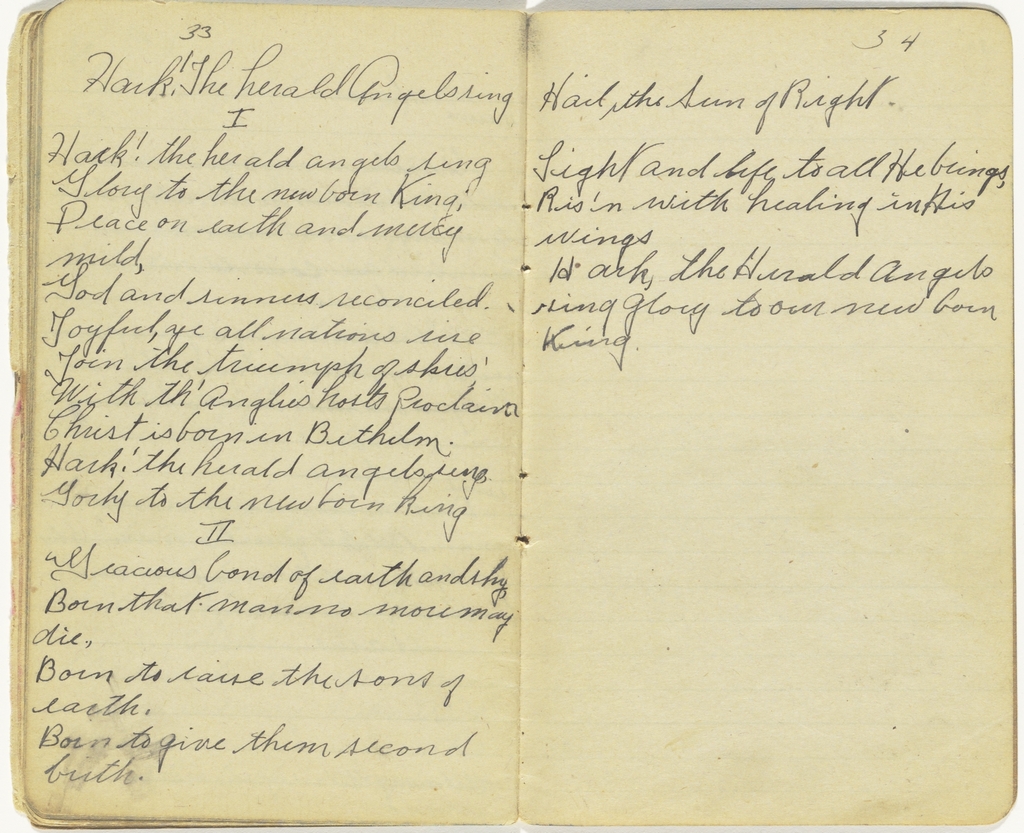 33
Hark! The herald Angels sing
I
Hark! the herald angels sing
Glory to the new born King,
Peace on earth and mercy
mild,
God and sinners reconciled.
Joyful, ye all nations rise
Join the triumph of skies'
With th' Anglies hosts proclaim
Christ is born in Bethelm.
Hark! the herald angels sing
Gorly to the new born King
II
"Gracious bond of earth and sky,
Born that man no more may
die,
Born to raise the sons of
earth.
Born to give them second
birth.
34
Hail, the Sun of Right.
Light and life to all He brings,
Ris'n with healing in His
wings
Hark, the Herald Angels
sing Glory to our new born
King.